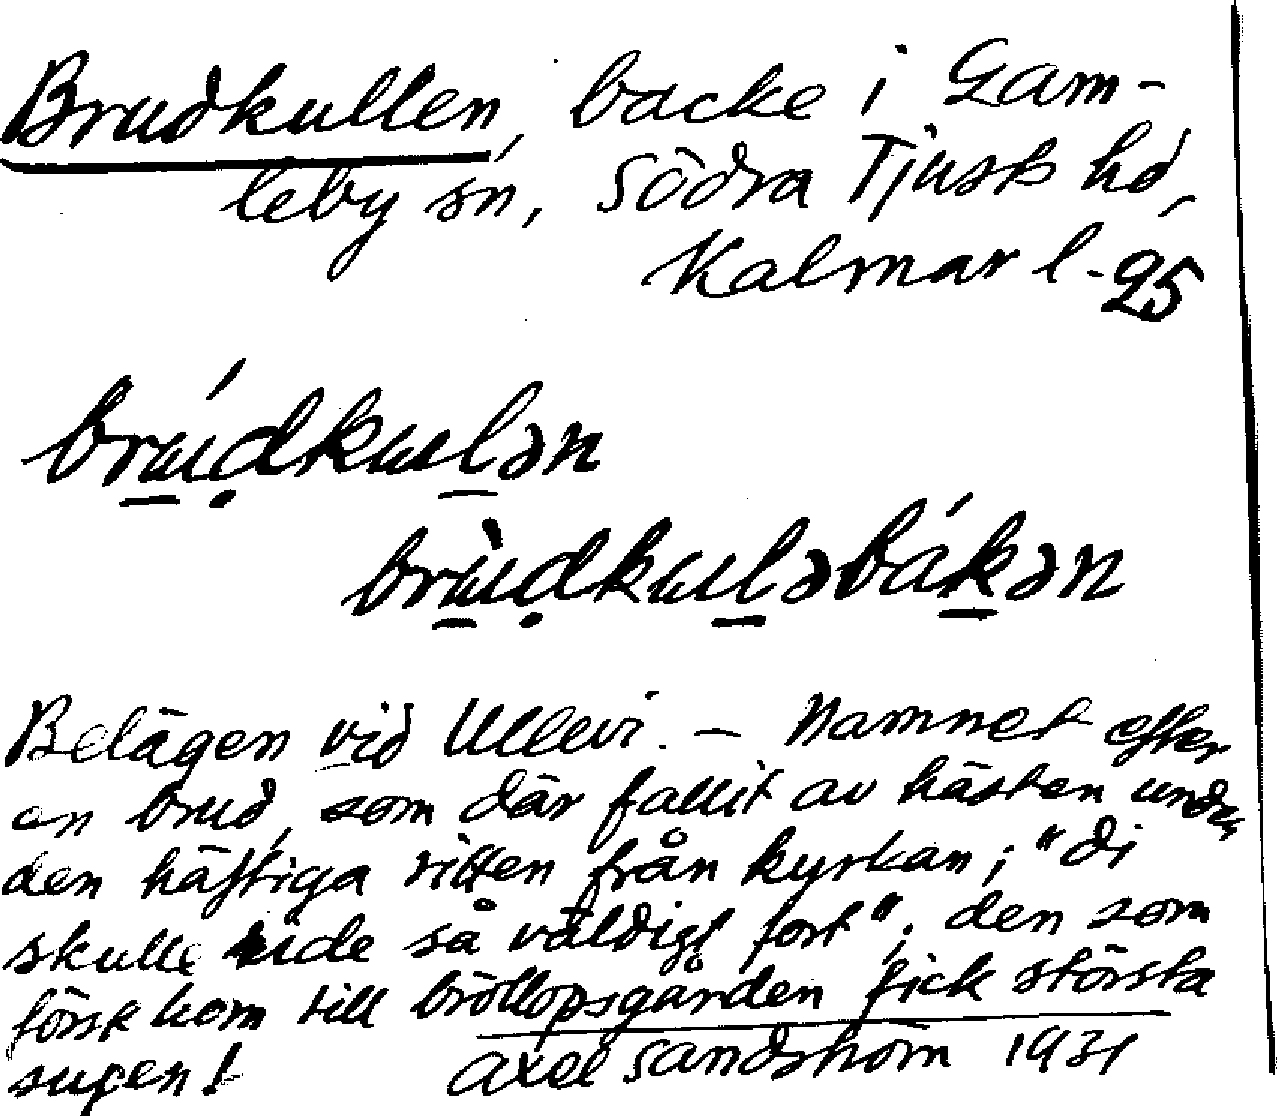 Brudkullen, backe i Gam-
leby sn, Södra Tjust hd,
Kalmar l. 95
brúdkulən
brùdkuləbákən
Belägen vid Ullevi. – Namnet efter
en brud, som där fallit av hästen under
den häftiga ritten från kyrkan; "di
skulle ride så väldigt fort"; den som
först kom till bröllopsgården fick största
supen!
Axel Sandström 1931